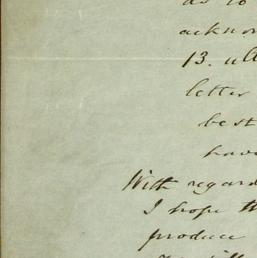 as to
acknow
13. ult
letter
best
have
With regard
I hope th
produce